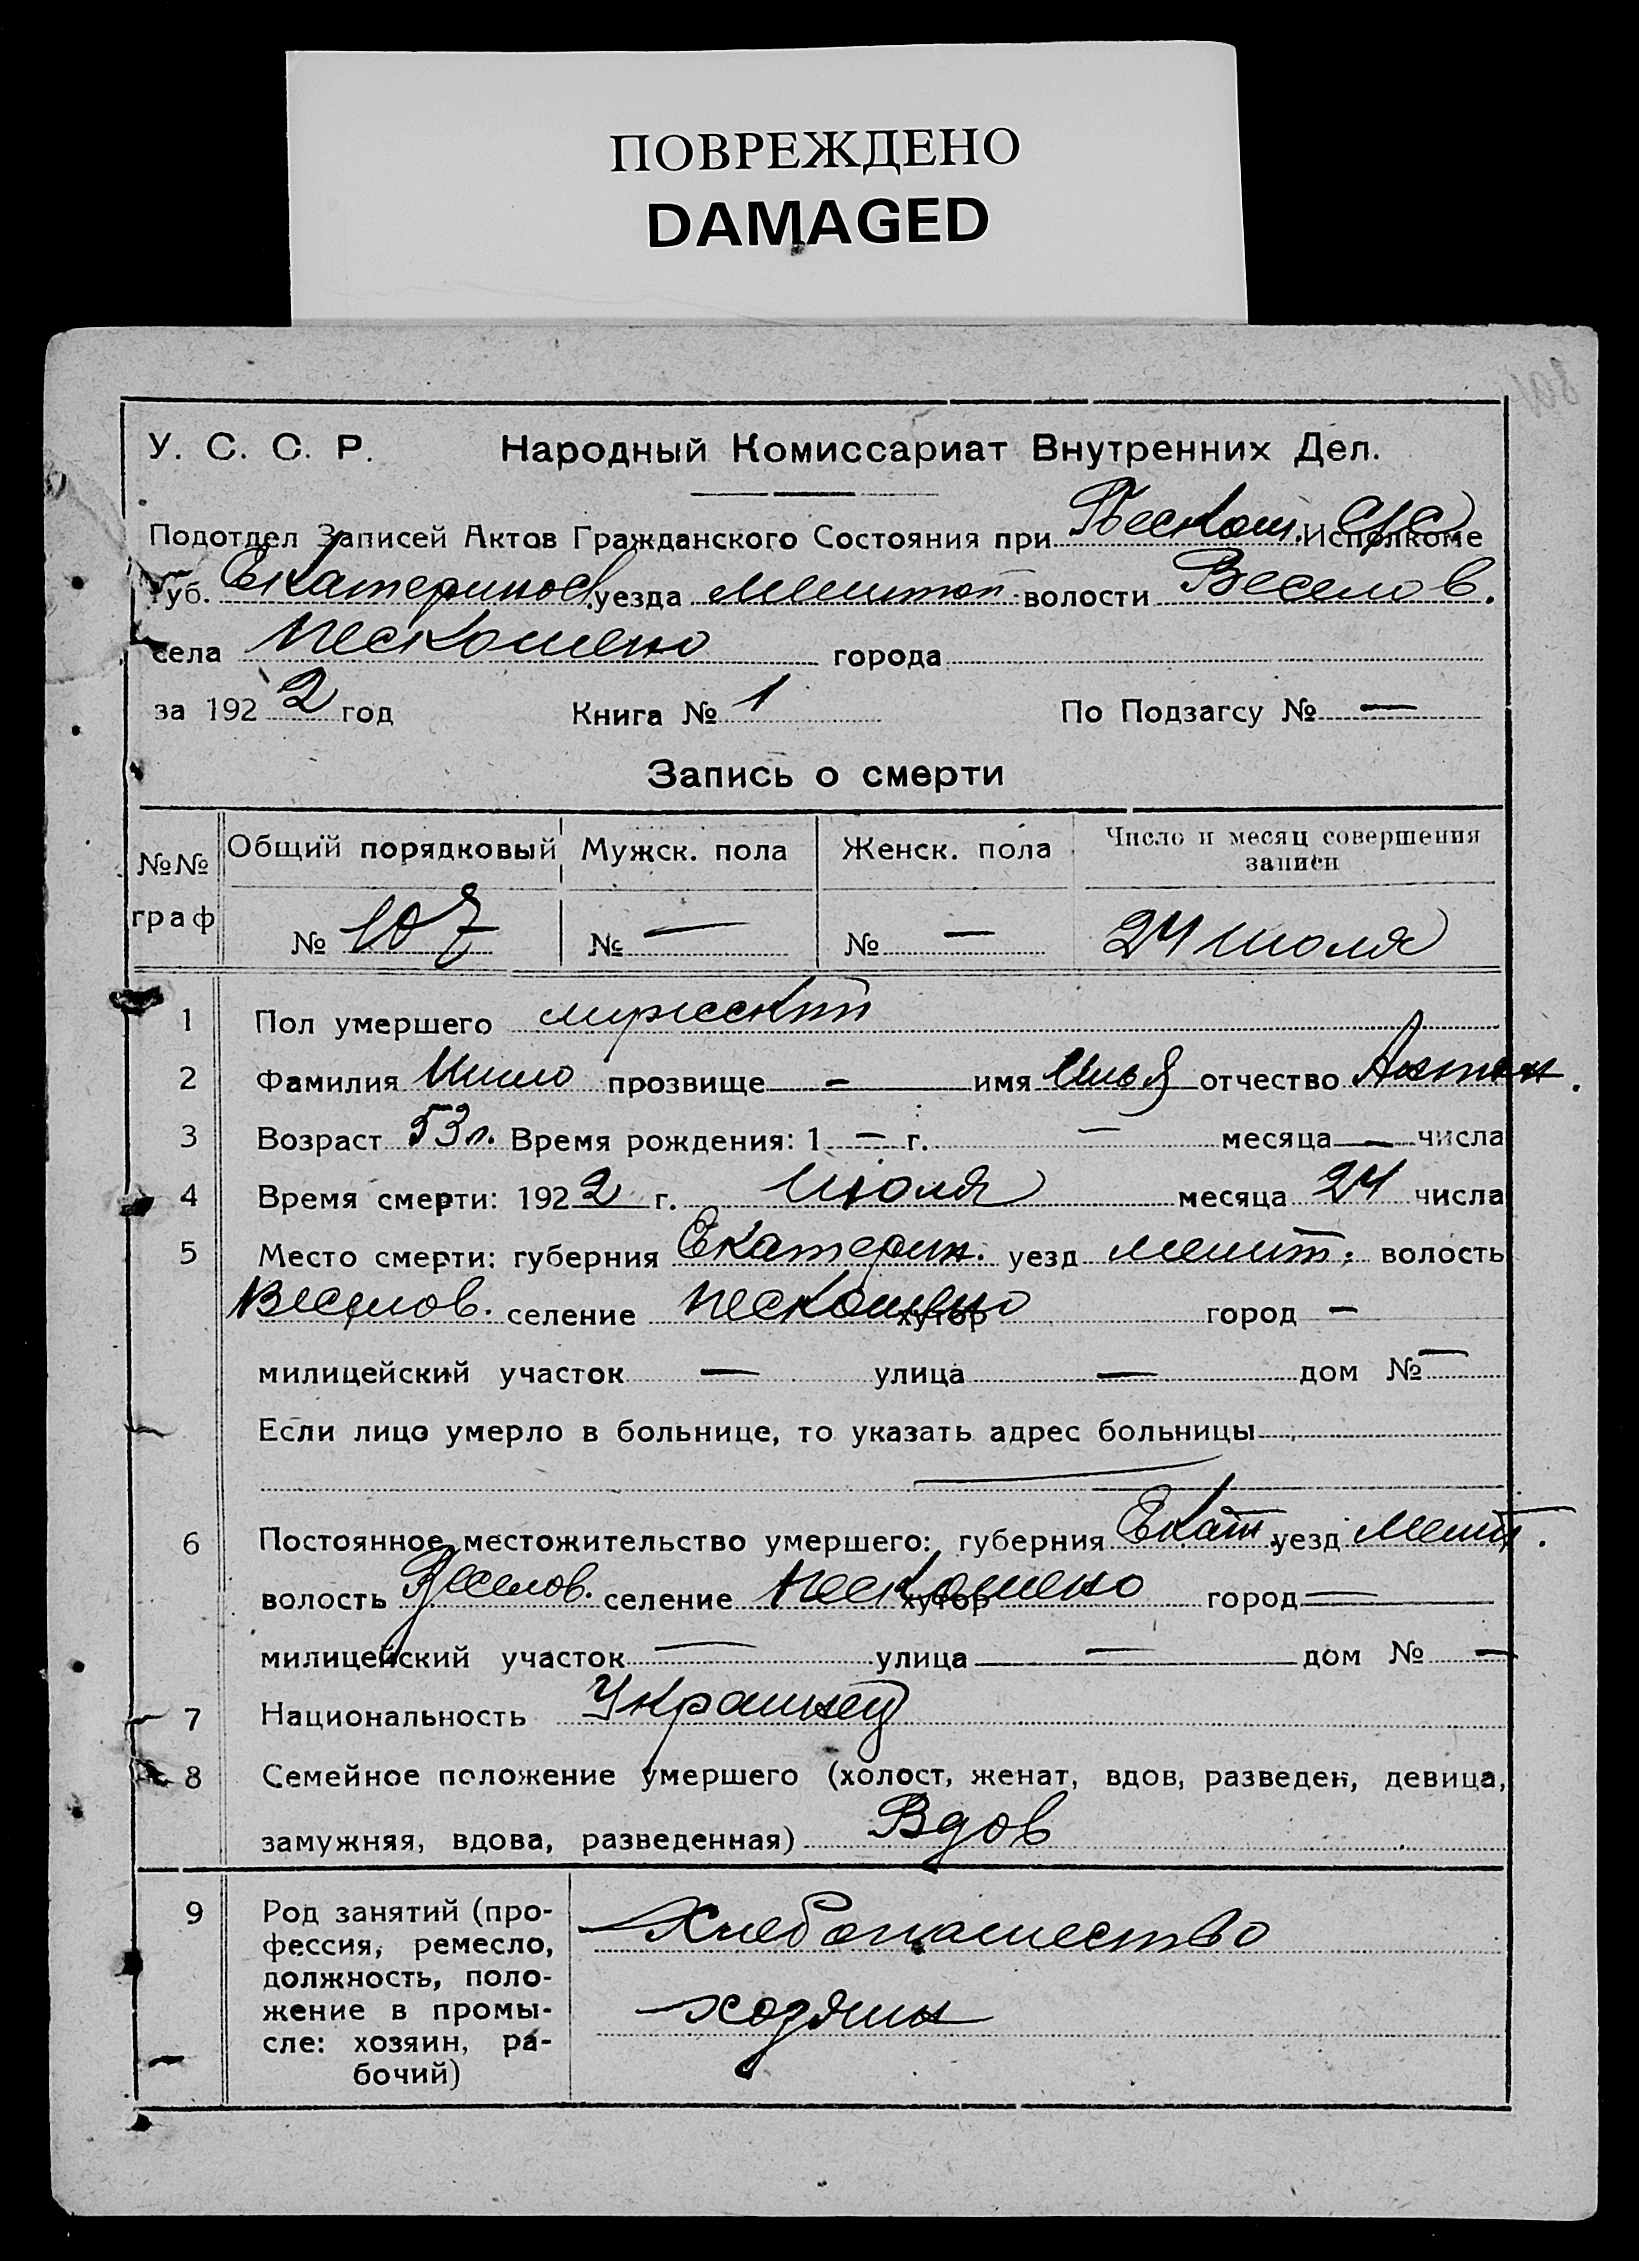 ПОВРЕЖДЕНО
DAMAGED
У. С. С. Р. Народный Комиссариат Внутренних Дел.
Подотдел Записей Актов Гражданского Состояния при Пескош. Исполкоме
Губ. Екатеринослв. уезда Мелитоп. волости Веселов.
села Пескошено города
за 1922 год Книга № 1 По Подзагсу № —
Запись о смерти
№№ граф Общий порядковый Мужск. пола Женск. пола Число и месяц совершения записи
№ 107 № — № — 24 июля
1 Пол умершего мужский
2 Фамилия прозвище - имя Илья отчество Антон.
3 Возраст 53 л. Время рождения: 1 — г. — месяца — числа
4 Время смерти: 1922 г. Июля месяца 24 числа
5 Место смерти: губерния Екатерин. уезд Мелит. волость
Веселов. селение Пескошено хутор город —
милицейский участок — улица — дом № —
Если лицо умерло в больнице, то указать адрес больницы
—
6 Постоянное местожительство умершего: губерния Екат. уезд Мелит.
волость Веселов. селение Пескошено хутор город —
милицейский участок — улица — дом № —
7 Национальность Украинец
8 Семейное положение умершего (холост, женат, вдов, разведен, девица,
замужняя, вдова, разведенная) Вдов
9 Род занятий (про-
фессия, ремесло,
должность, поло-
жение в промы-
сле: хозяин, ра-
бочий)
Хлебопашество
хозяин